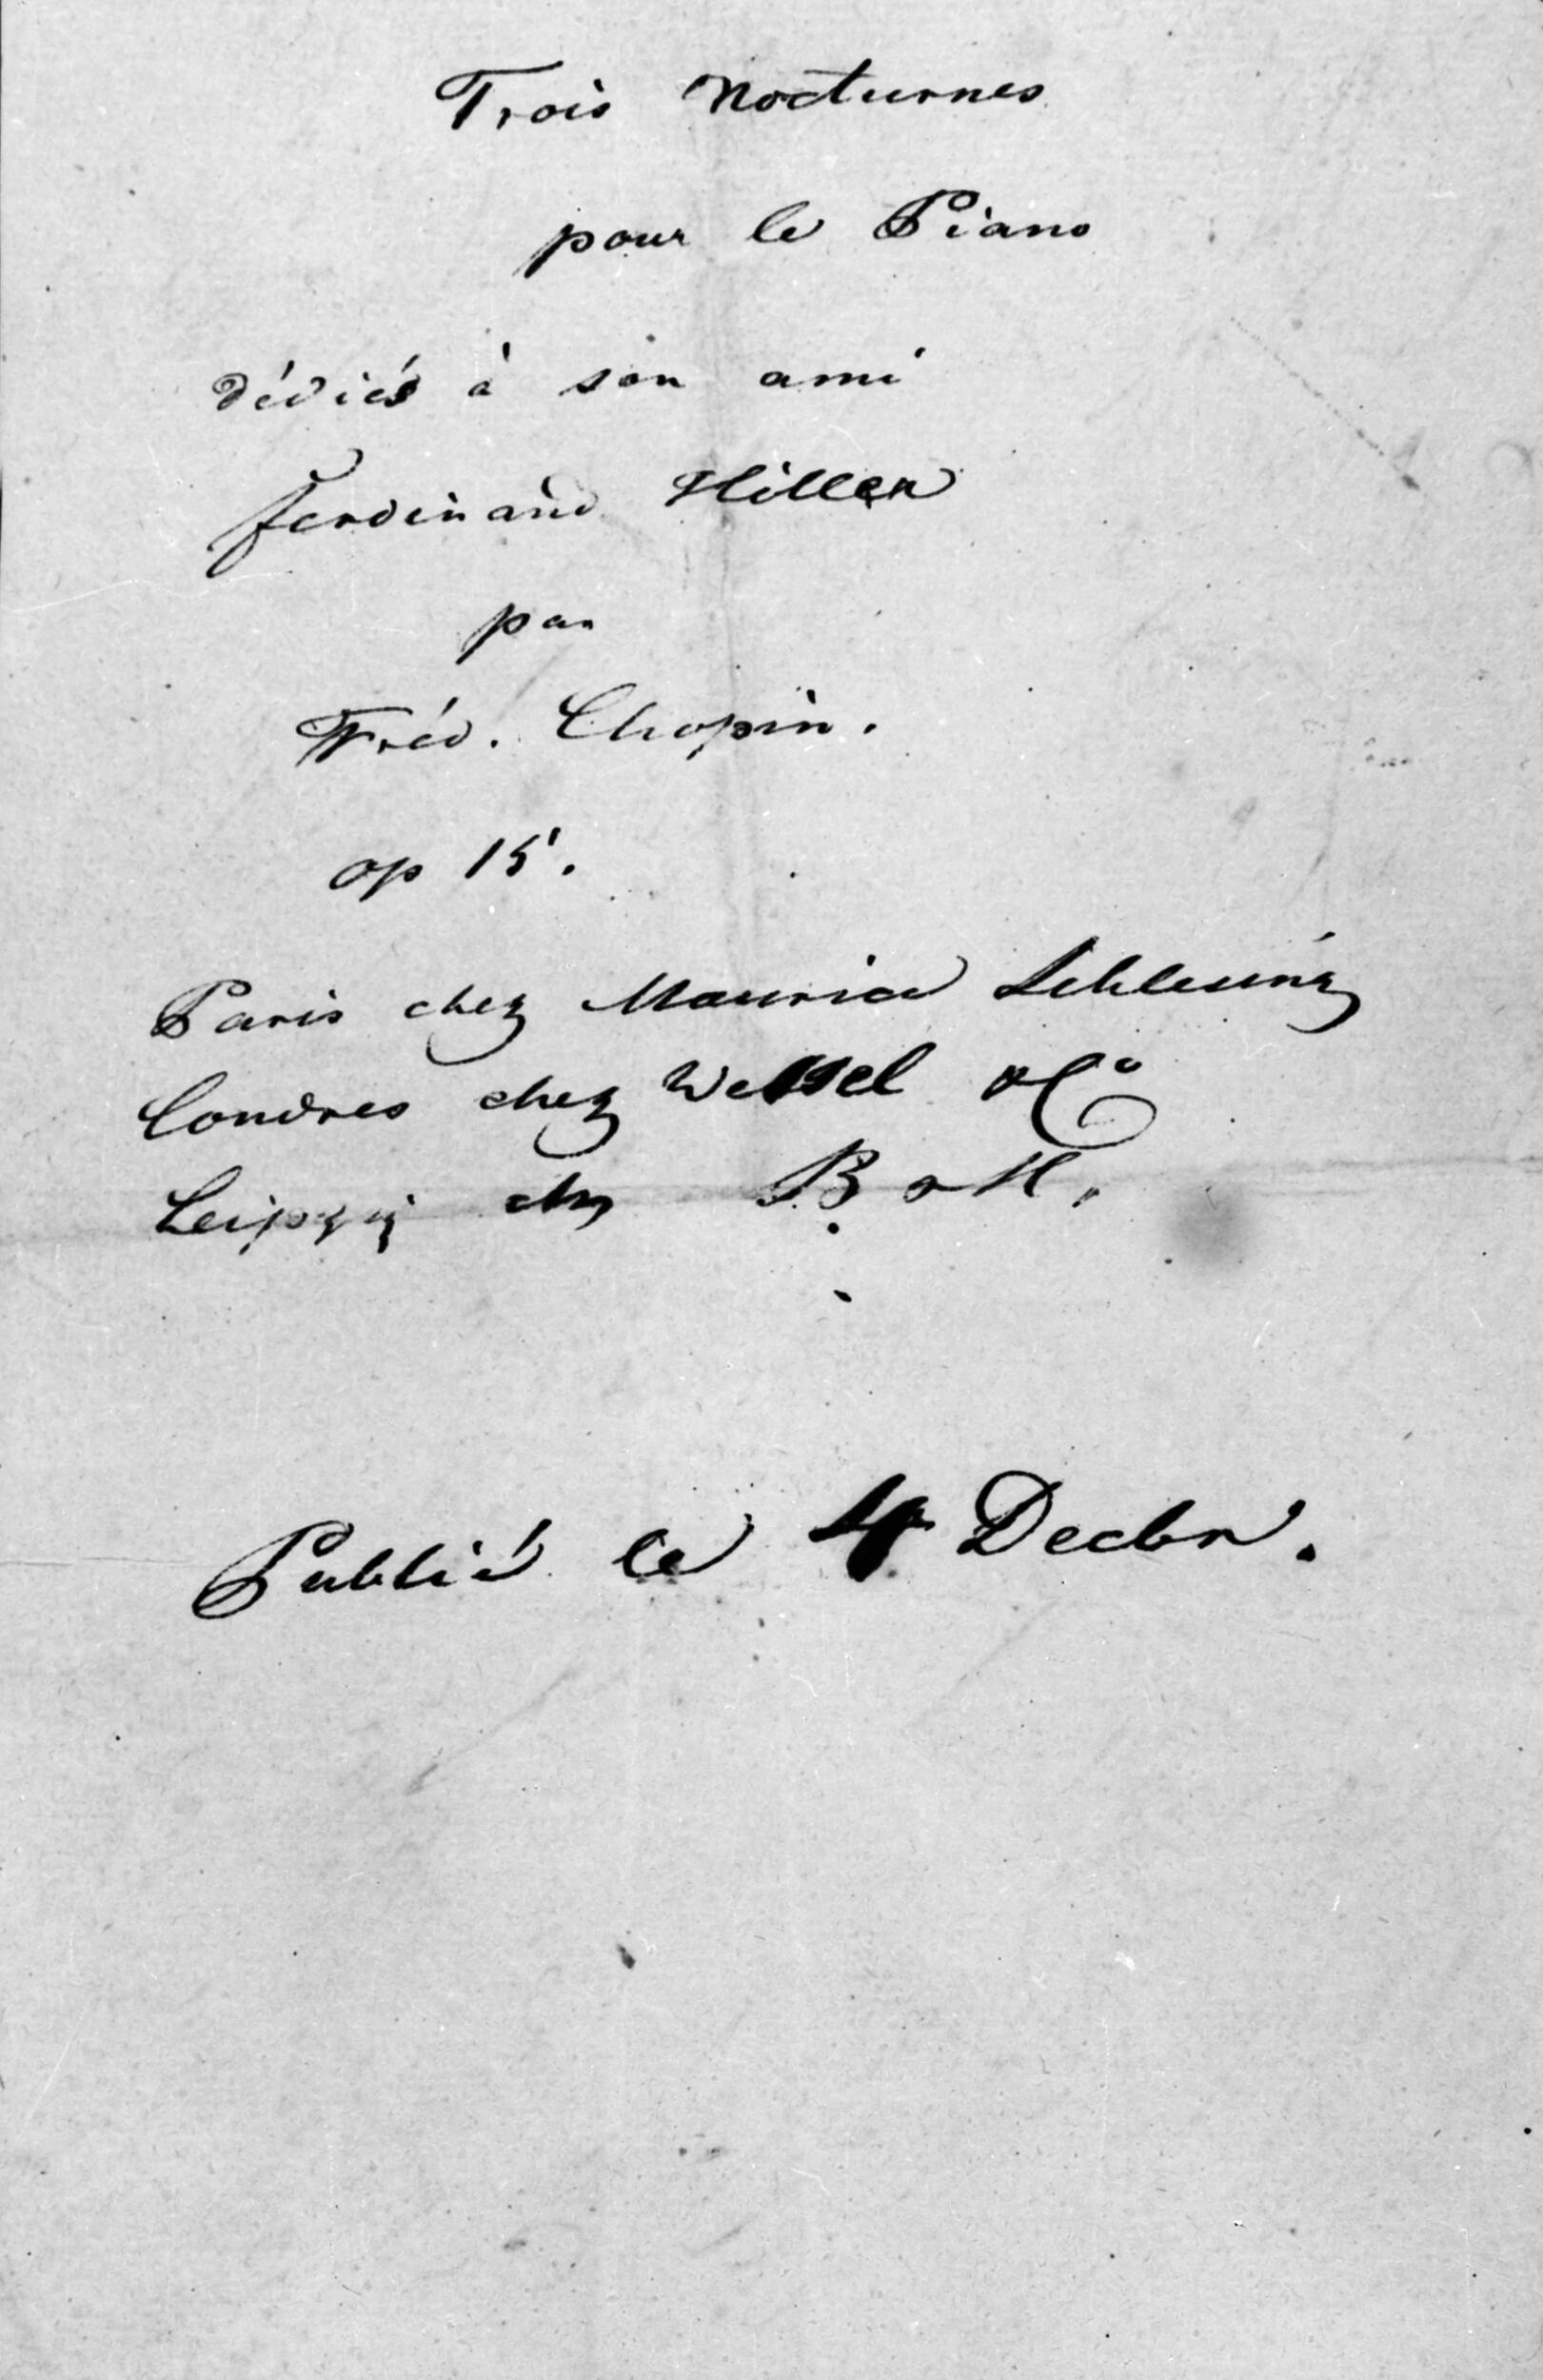 Trois Nocturnes
pour le Piano
dédiés à son ami
Ferdinand Hiller
par
Fréd. Chopin.
op 15.
Paris chez Maurice
Londres chez Wessel & Co
Leipzig chez B & H.
Publié le 4 Decbr.